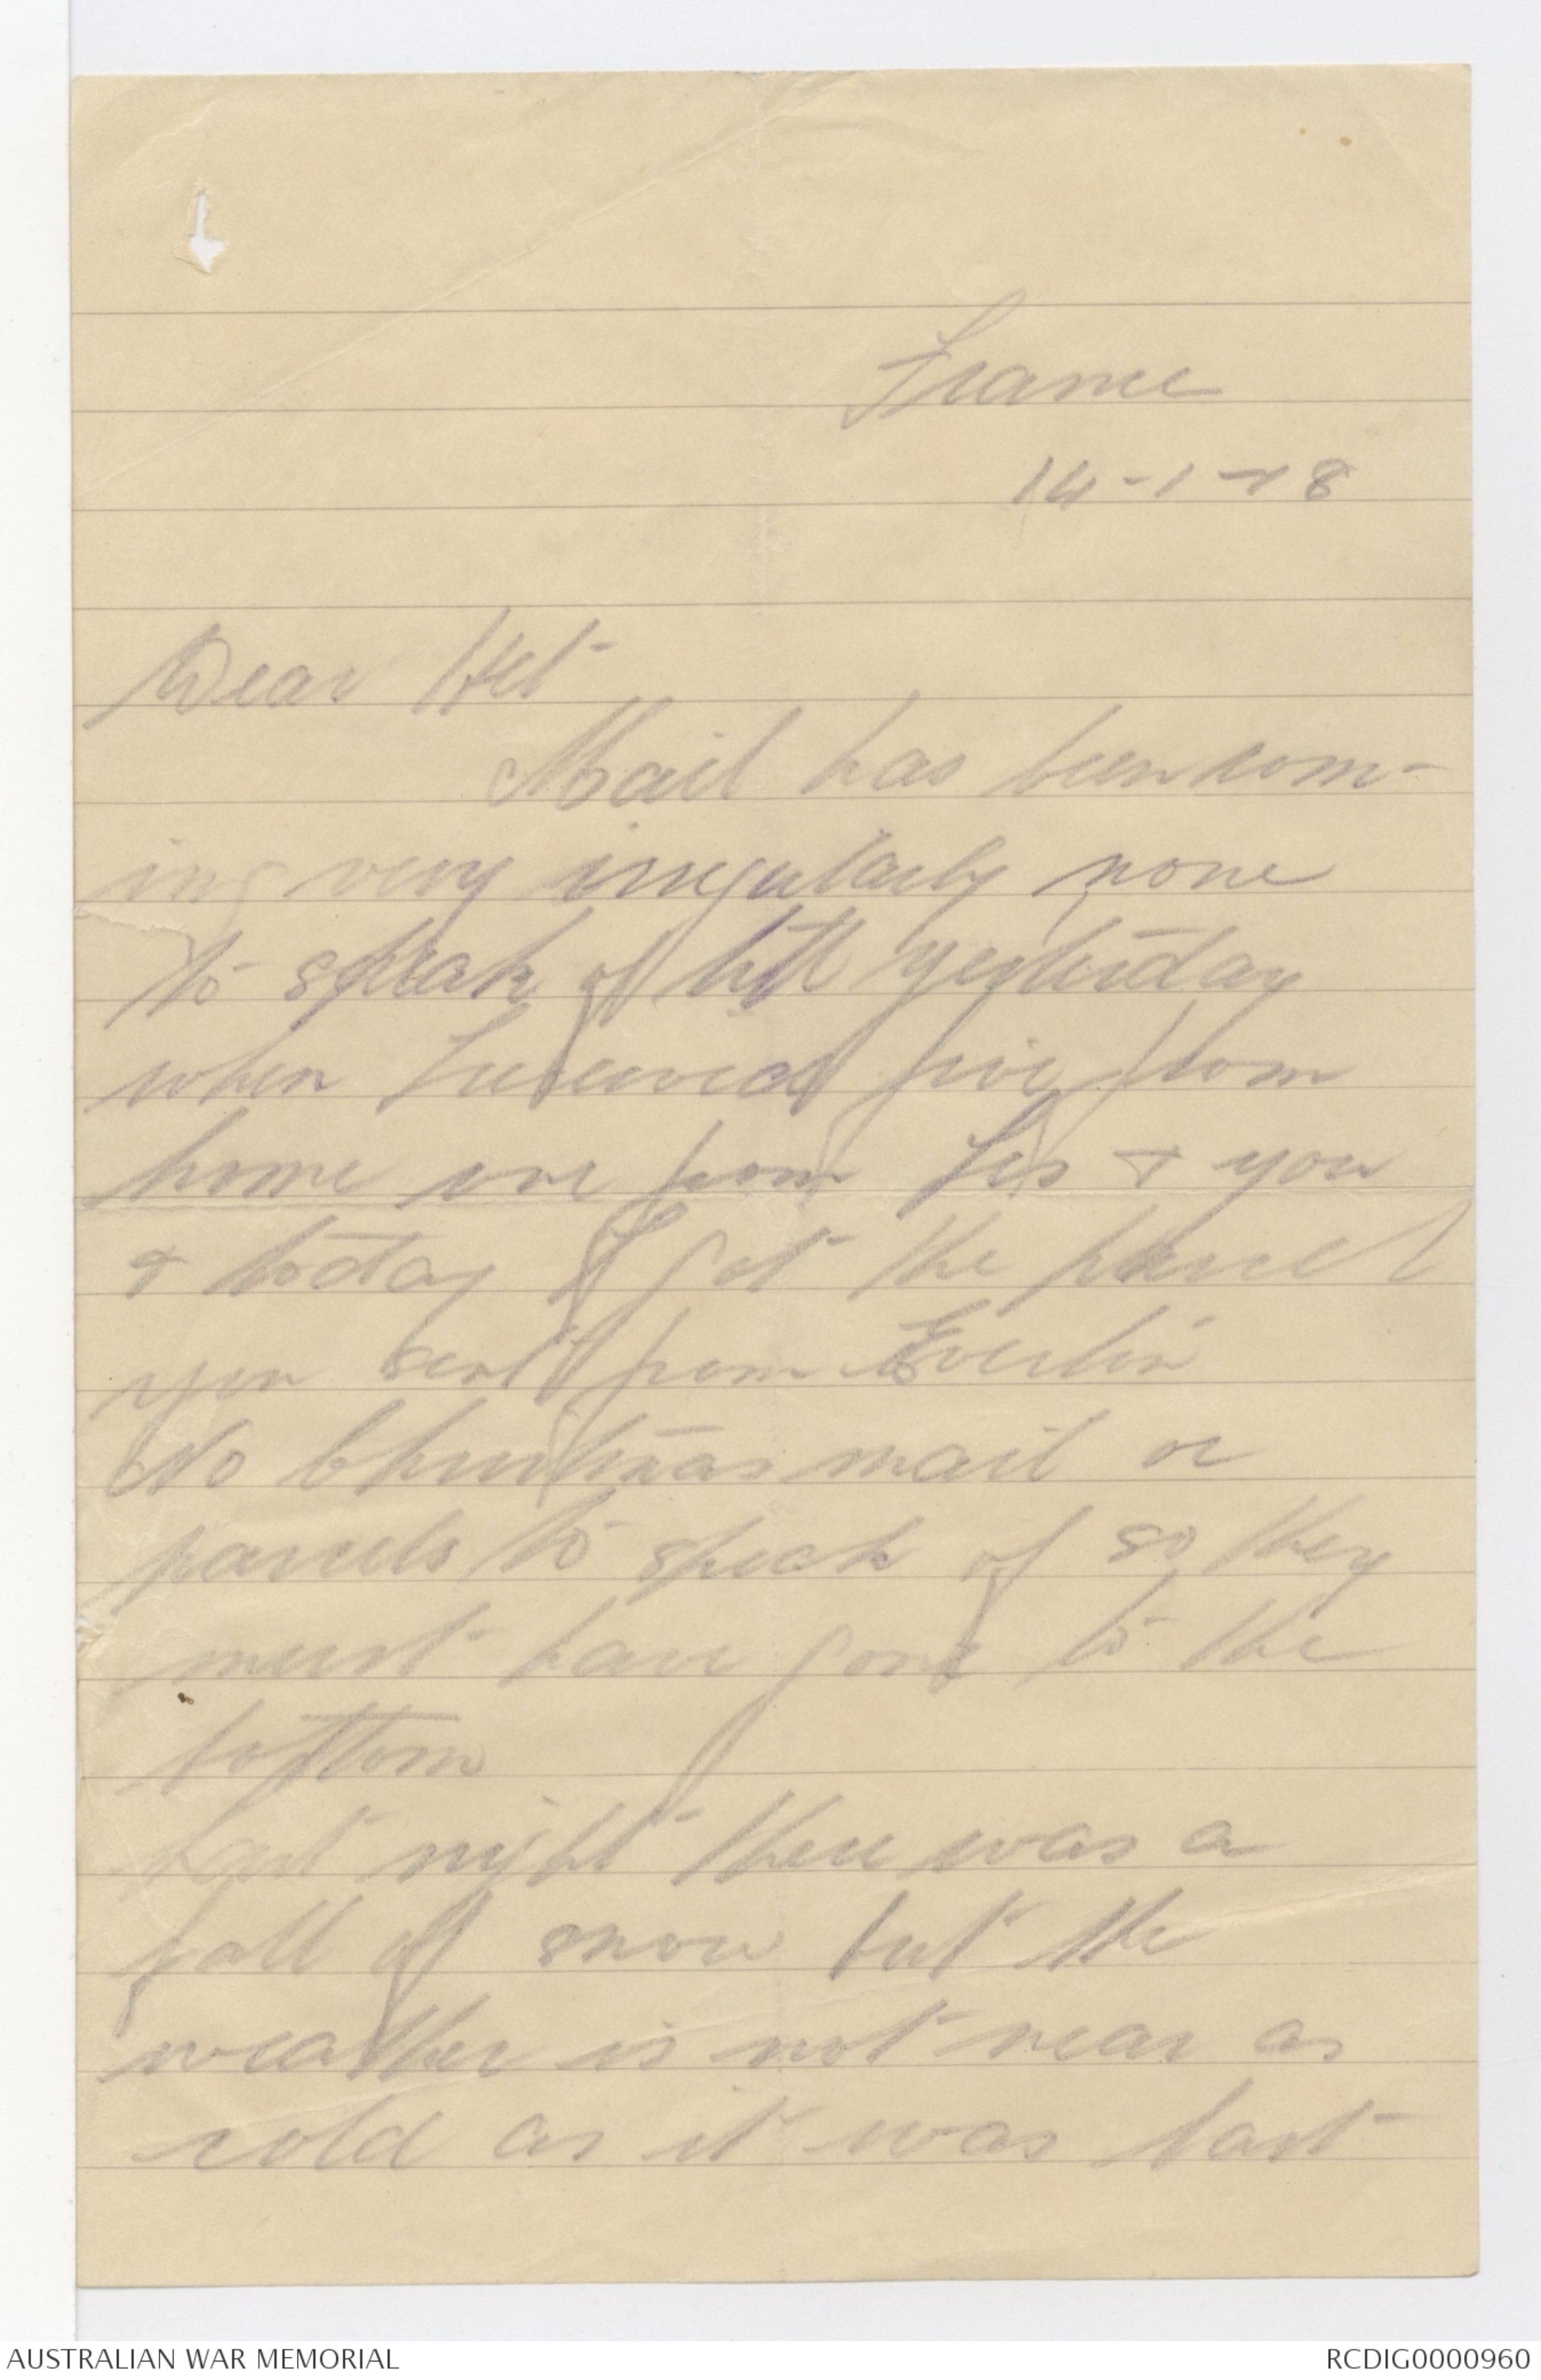 France
14-1-18
Dear Het
Mail has been com-
ing very irregularly none
to speak of till yesterday
when I received five from
home one from Les & you
& today I got the parcel
you sent from
No Christmas mail or
parcels to speak of so they
must have gone to the
bottom
Last night there was a
fall of snow but the
weather is not near as
cold as it was last
AUSTRALIAN WAR MEMORIAL
RCDIG0000960